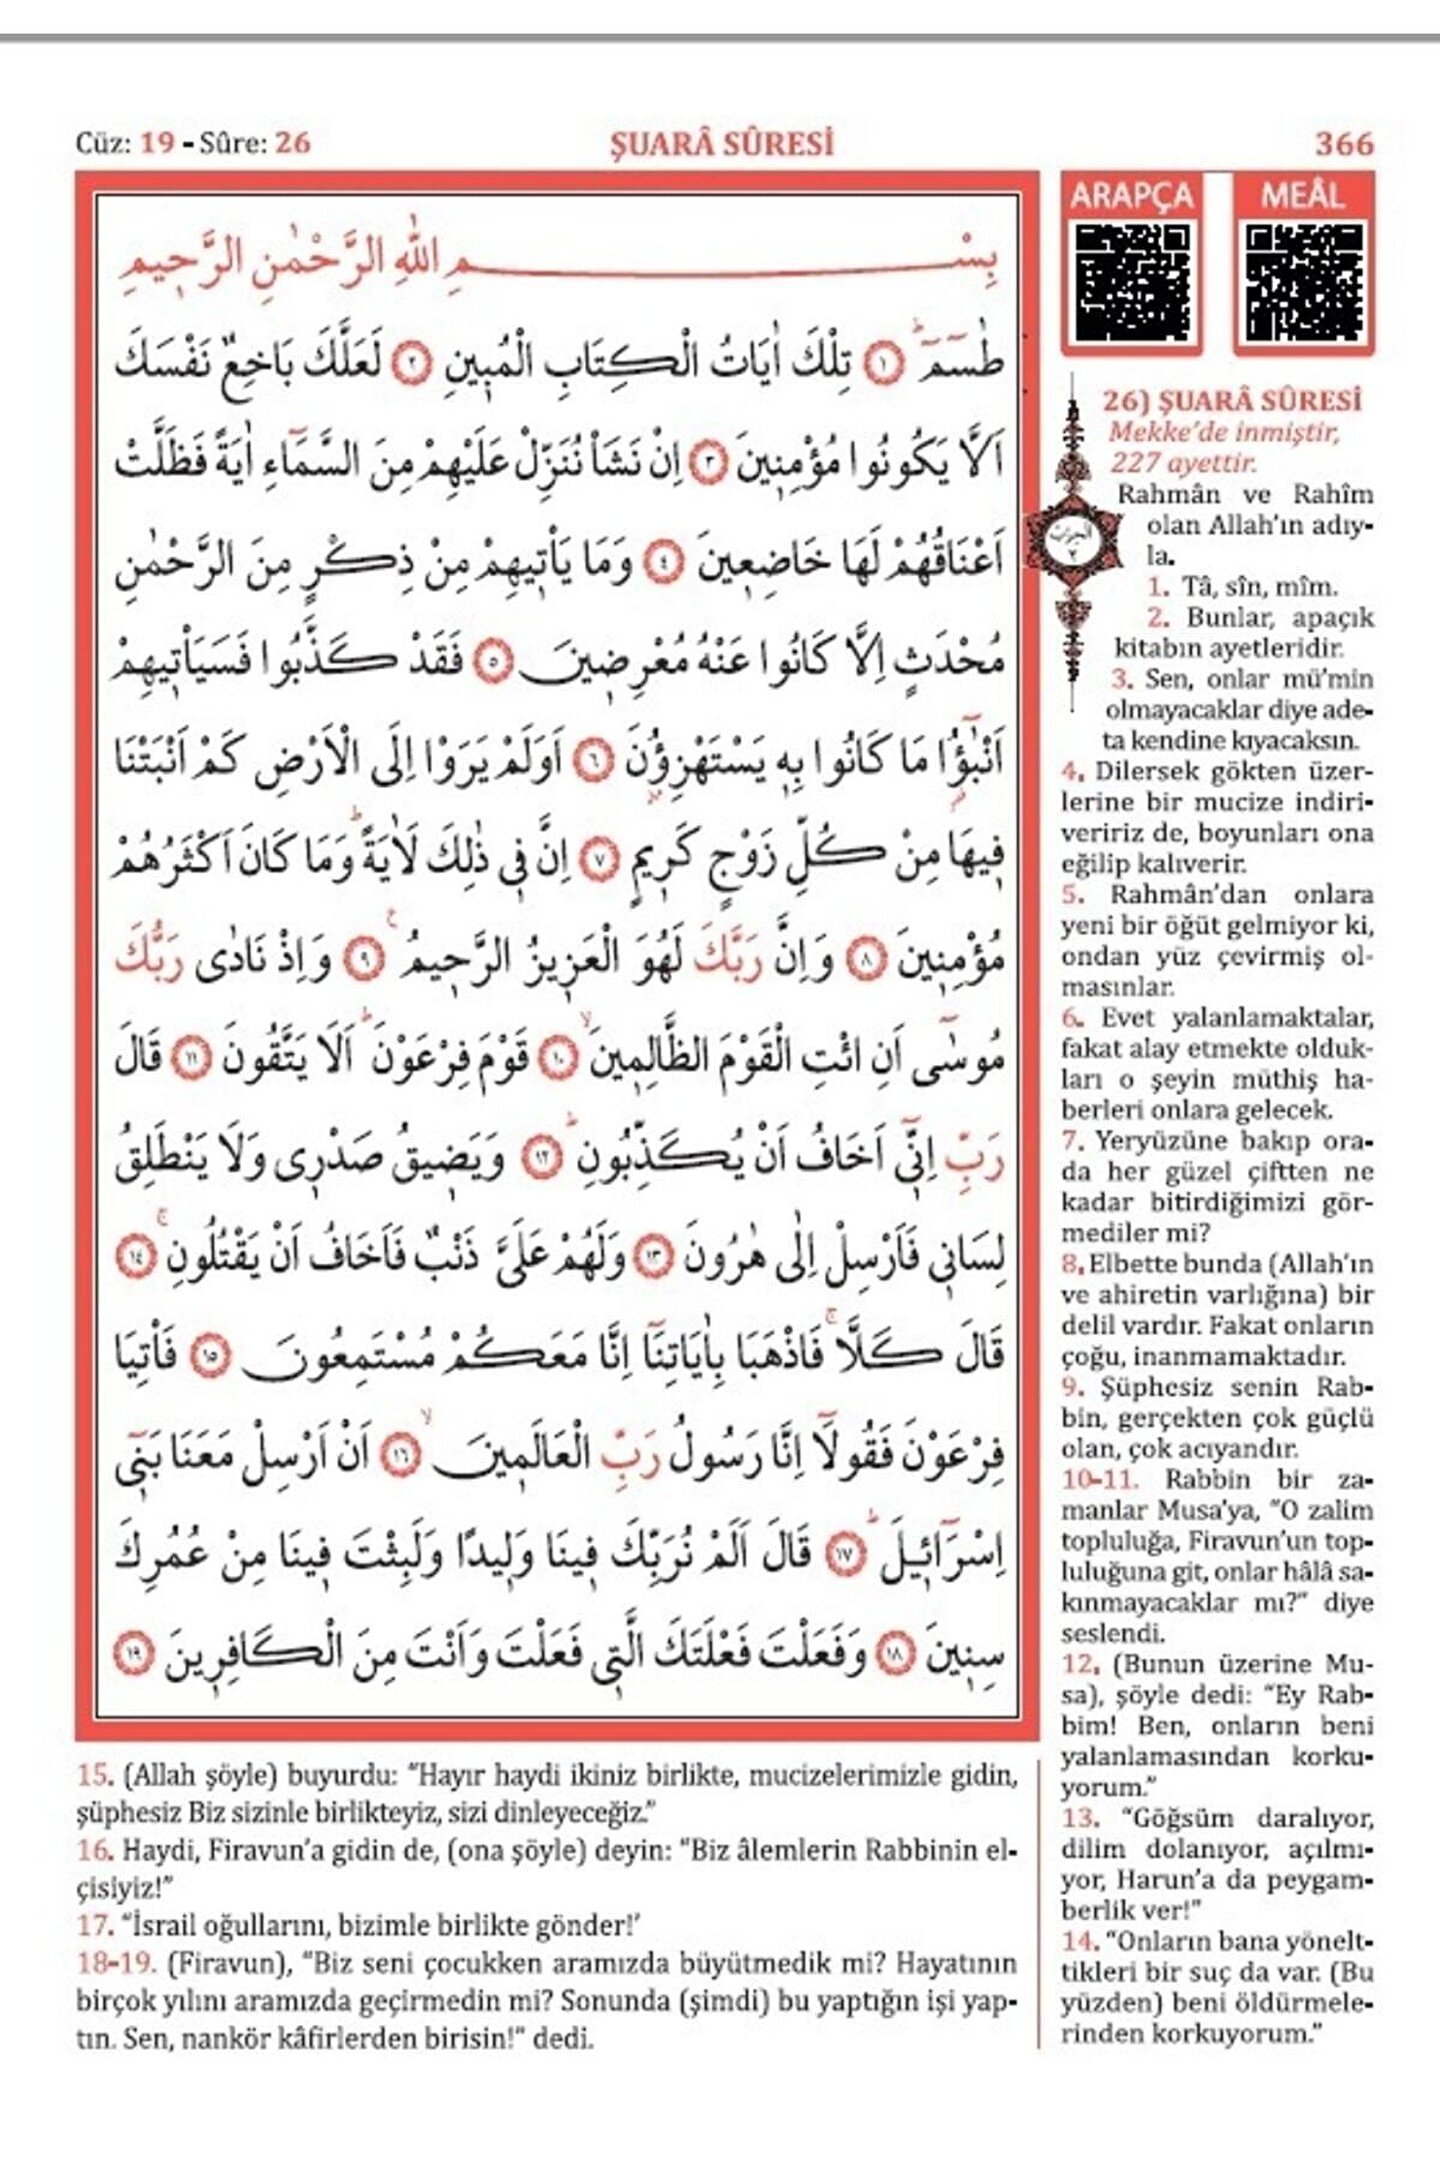 Cüz: 19 - Sûre: 26
ŞUARÂ SÛRESİ
366
بِسْمِ اللّٰهِ الرَّحْمٰنِ الرَّح۪يمِ
طٰسٓمٓۜ ﴿١﴾ تِلْكَ اٰيَاتُ الْكِتَابِ الْمُب۪ينِ ﴿٢﴾ لَعَلَّكَ بَاخِعٌ نَفْسَكَ
اَلَّا يَكُونُوا مُؤْمِن۪ينَ ﴿٣﴾ اِنْ نَشَأْ نُنَزِّلْ عَلَيْهِمْ مِنَ السَّمَٓاءِ اٰيَةً فَظَلَّتْ
اَعْنَاقُهُمْ لَهَا خَاضِع۪ينَ ﴿٤﴾ وَمَا يَأْت۪يهِمْ مِنْ ذِكْرٍ مِنَ الرَّحْمٰنِ
مُحْدَثٍ اِلَّا كَانُوا عَنْهُ مُعْرِض۪ينَ ﴿٥﴾ فَقَدْ كَذَّبُوا فَسَيَأْت۪يهِمْ
اَنْبٰٓؤُ۬ا مَا كَانُوا بِه۪ يَسْتَهْزِؤُ۫نَ ﴿٦﴾ اَوَلَمْ يَرَوْا اِلَى الْاَرْضِ كَمْ اَنْبَتْنَا
ف۪يهَا مِنْ كُلِّ زَوْجٍ كَر۪يمٍ ﴿٧﴾ اِنَّ ف۪ي ذٰلِكَ لَاٰيَةًۜ وَمَا كَانَ اَكْثَرُهُمْ
مُؤْمِن۪ينَ ﴿٨﴾ وَاِنَّ رَبَّكَ لَهُوَ الْعَز۪يزُ الرَّح۪يمُ۟ ﴿٩﴾ وَاِذْ نَادٰى رَبُّكَ
مُوسٰٓى اَنِ ائْتِ الْقَوْمَ الظَّالِم۪ينَۙ ﴿١٠﴾ قَوْمَ فِرْعَوْنَۜ اَلَا يَتَّقُونَ ﴿١١﴾ قَالَ
رَبِّ اِنّ۪ٓي اَخَافُ اَنْ يُكَذِّبُونِۜ ﴿١٢﴾ وَيَض۪يقُ صَدْر۪ي وَلَا يَنْطَلِقُ
لِسَان۪ي فَاَرْسِلْ اِلٰى هٰرُونَ ﴿١٣﴾ وَلَهُمْ عَلَيَّ ذَنْبٌ فَاَخَافُ اَنْ يَقْتُلُونِۚ ﴿١٤﴾
قَالَ كَلَّاۚ فَاذْهَبَا بِاٰيَاتِنَٓا اِنَّا مَعَكُمْ مُسْتَمِعُونَ ﴿١٥﴾ فَأْتِيَا
فِرْعَوْنَ فَقُولَٓا اِنَّا رَسُولُ رَبِّ الْعَالَم۪ينَۙ ﴿١٦﴾ اَنْ اَرْسِلْ مَعَنَا بَن۪ٓي
اِسْرَٓائ۪لَۜ ﴿١٧﴾ قَالَ اَلَمْ نُرَبِّكَ ف۪ينَا وَل۪يدًا وَلَبِثْتَ ف۪ينَا مِنْ عُمُرِكَ
سِن۪ينَ ﴿١٨﴾ وَفَعَلْتَ فَعْلَتَكَ الَّت۪ي فَعَلْتَ وَاَنْتَ مِنَ الْكَافِر۪ينَ ﴿١٩﴾
ARAPÇA
MEÂL
26) ŞUARÂ SÛRESİ
Mekke’de inmiştir,
227 ayettir.
Rahmân ve Rahîm
olan Allah’ın adıy-
la.
1. Tâ, sîn, mîm.
2. Bunlar, apaçık
kitabın ayetleridir.
3. Sen, onlar mü’min
olmayacaklar diye ade-
ta kendine kıyacaksın.
4. Dilersek gökten üzer-
lerine bir mucize indiri-
veririz de, boyunları ona
eğilip kalıverir.
5. Rahmân’dan onlara
yeni bir öğüt gelmiyor ki,
ondan yüz çevirmiş ol-
masınlar.
6. Evet yalanlamaktalar,
fakat alay etmekte olduk-
ları o şeyin müthiş ha-
berleri onlara gelecek.
7. Yeryüzüne bakıp ora-
da her güzel çiftten ne
kadar bitirdiğimizi gör-
mediler mi?
8. Elbette bunda (Allah’ın
ve ahiretin varlığına) bir
delil vardır. Fakat onların
çoğu, inanmamaktadır.
9. Şüphesiz senin Rab-
bin, gerçekten çok güçlü
olan, çok acıyandır.
10-11. Rabbin bir za-
manlar Musa’ya, “O zalim
topluluğa, Firavun’un top-
luluğuna git, onlar hâlâ sa-
kınmayacaklar mı?” diye
seslendi.
12. (Bunun üzerine Mu-
sa), şöyle dedi: “Ey Rab-
bim! Ben, onların beni
yalanlamasından korku-
yorum.”
13. “Göğsüm daralıyor,
dilim dolanıyor, açılmı-
yor, Harun’a da peygam-
berlik ver!”
14. “Onların bana yönelt-
tikleri bir suç da var. (Bu
yüzden) beni öldürmele-
rinden korkuyorum.”
15. (Allah şöyle) buyurdu: “Hayır haydi ikiniz birlikte, mucizelerimizle gidin,
şüphesiz Biz sizinle birlikteyiz, sizi dinleyeceğiz.”
16. Haydi, Firavun’a gidin de, (ona şöyle) deyin: “Biz âlemlerin Rabbinin el-
çisiyiz!”
17. “İsrail oğullarını, bizimle birlikte gönder!’
18-19. (Firavun), “Biz seni çocukken aramızda büyütmedik mi? Hayatının
birçok yılını aramızda geçirmedin mi? Sonunda (şimdi) bu yaptığın işi yap-
tın. Sen, nankör kâfirlerden birisin!” dedi.